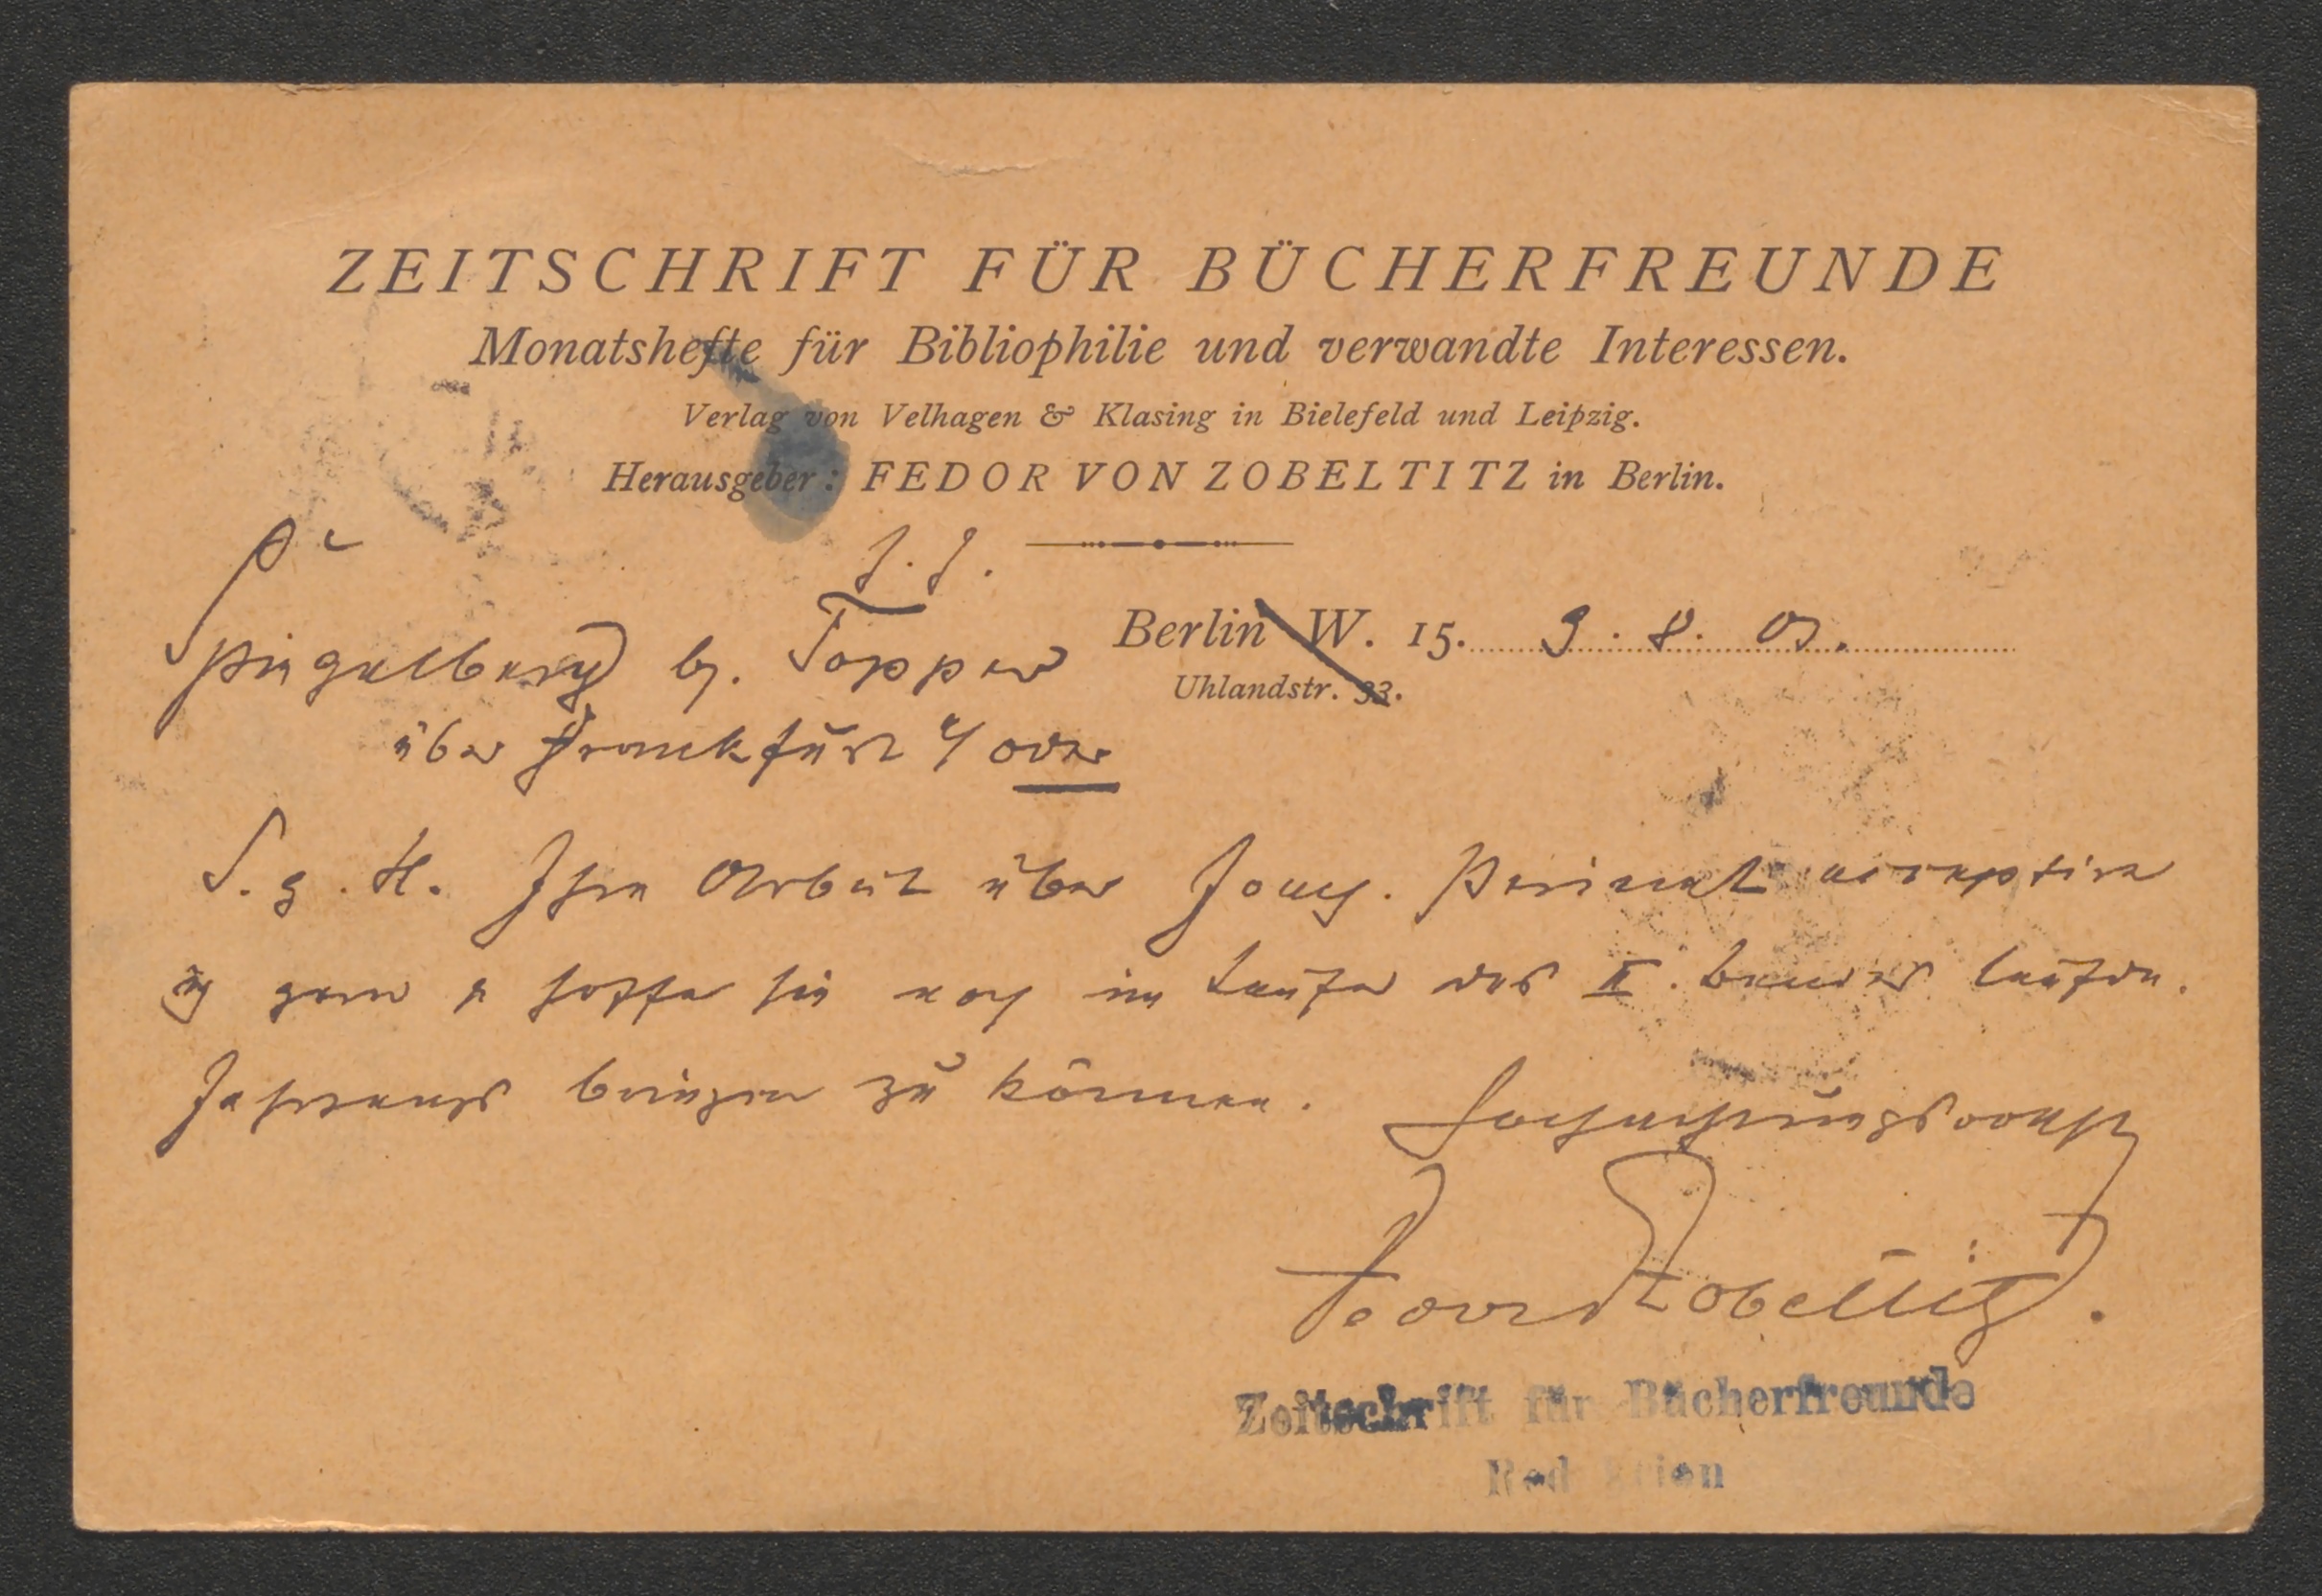 ZEITSCHRIFT FÜR BÜCHERFREUNDE
Monatshefte für Bibliophilie und verwandte Interessen.
Verlag von Velhagen & Klasing in Bielefeld und Leipzig.
Herausgeber: FEDOR VON ZOBELTITZ in Berlin.
Berlin W. 15. 9. 8. 03.
Uhlandstr. 33.
Spiegelberg b. Topper
über Frankfurt a/Oder
S. g. H. Ihre Arbeit über Joach. acceptire
ich gern u hoffe sie noch im Laufe des II. Bandes laufdn.
Jahrgangs bringen zu können. Hochachtungsvollst
Fedor Zobeltitz.
Zeitschrift für Bücherfreunde
Redaktion